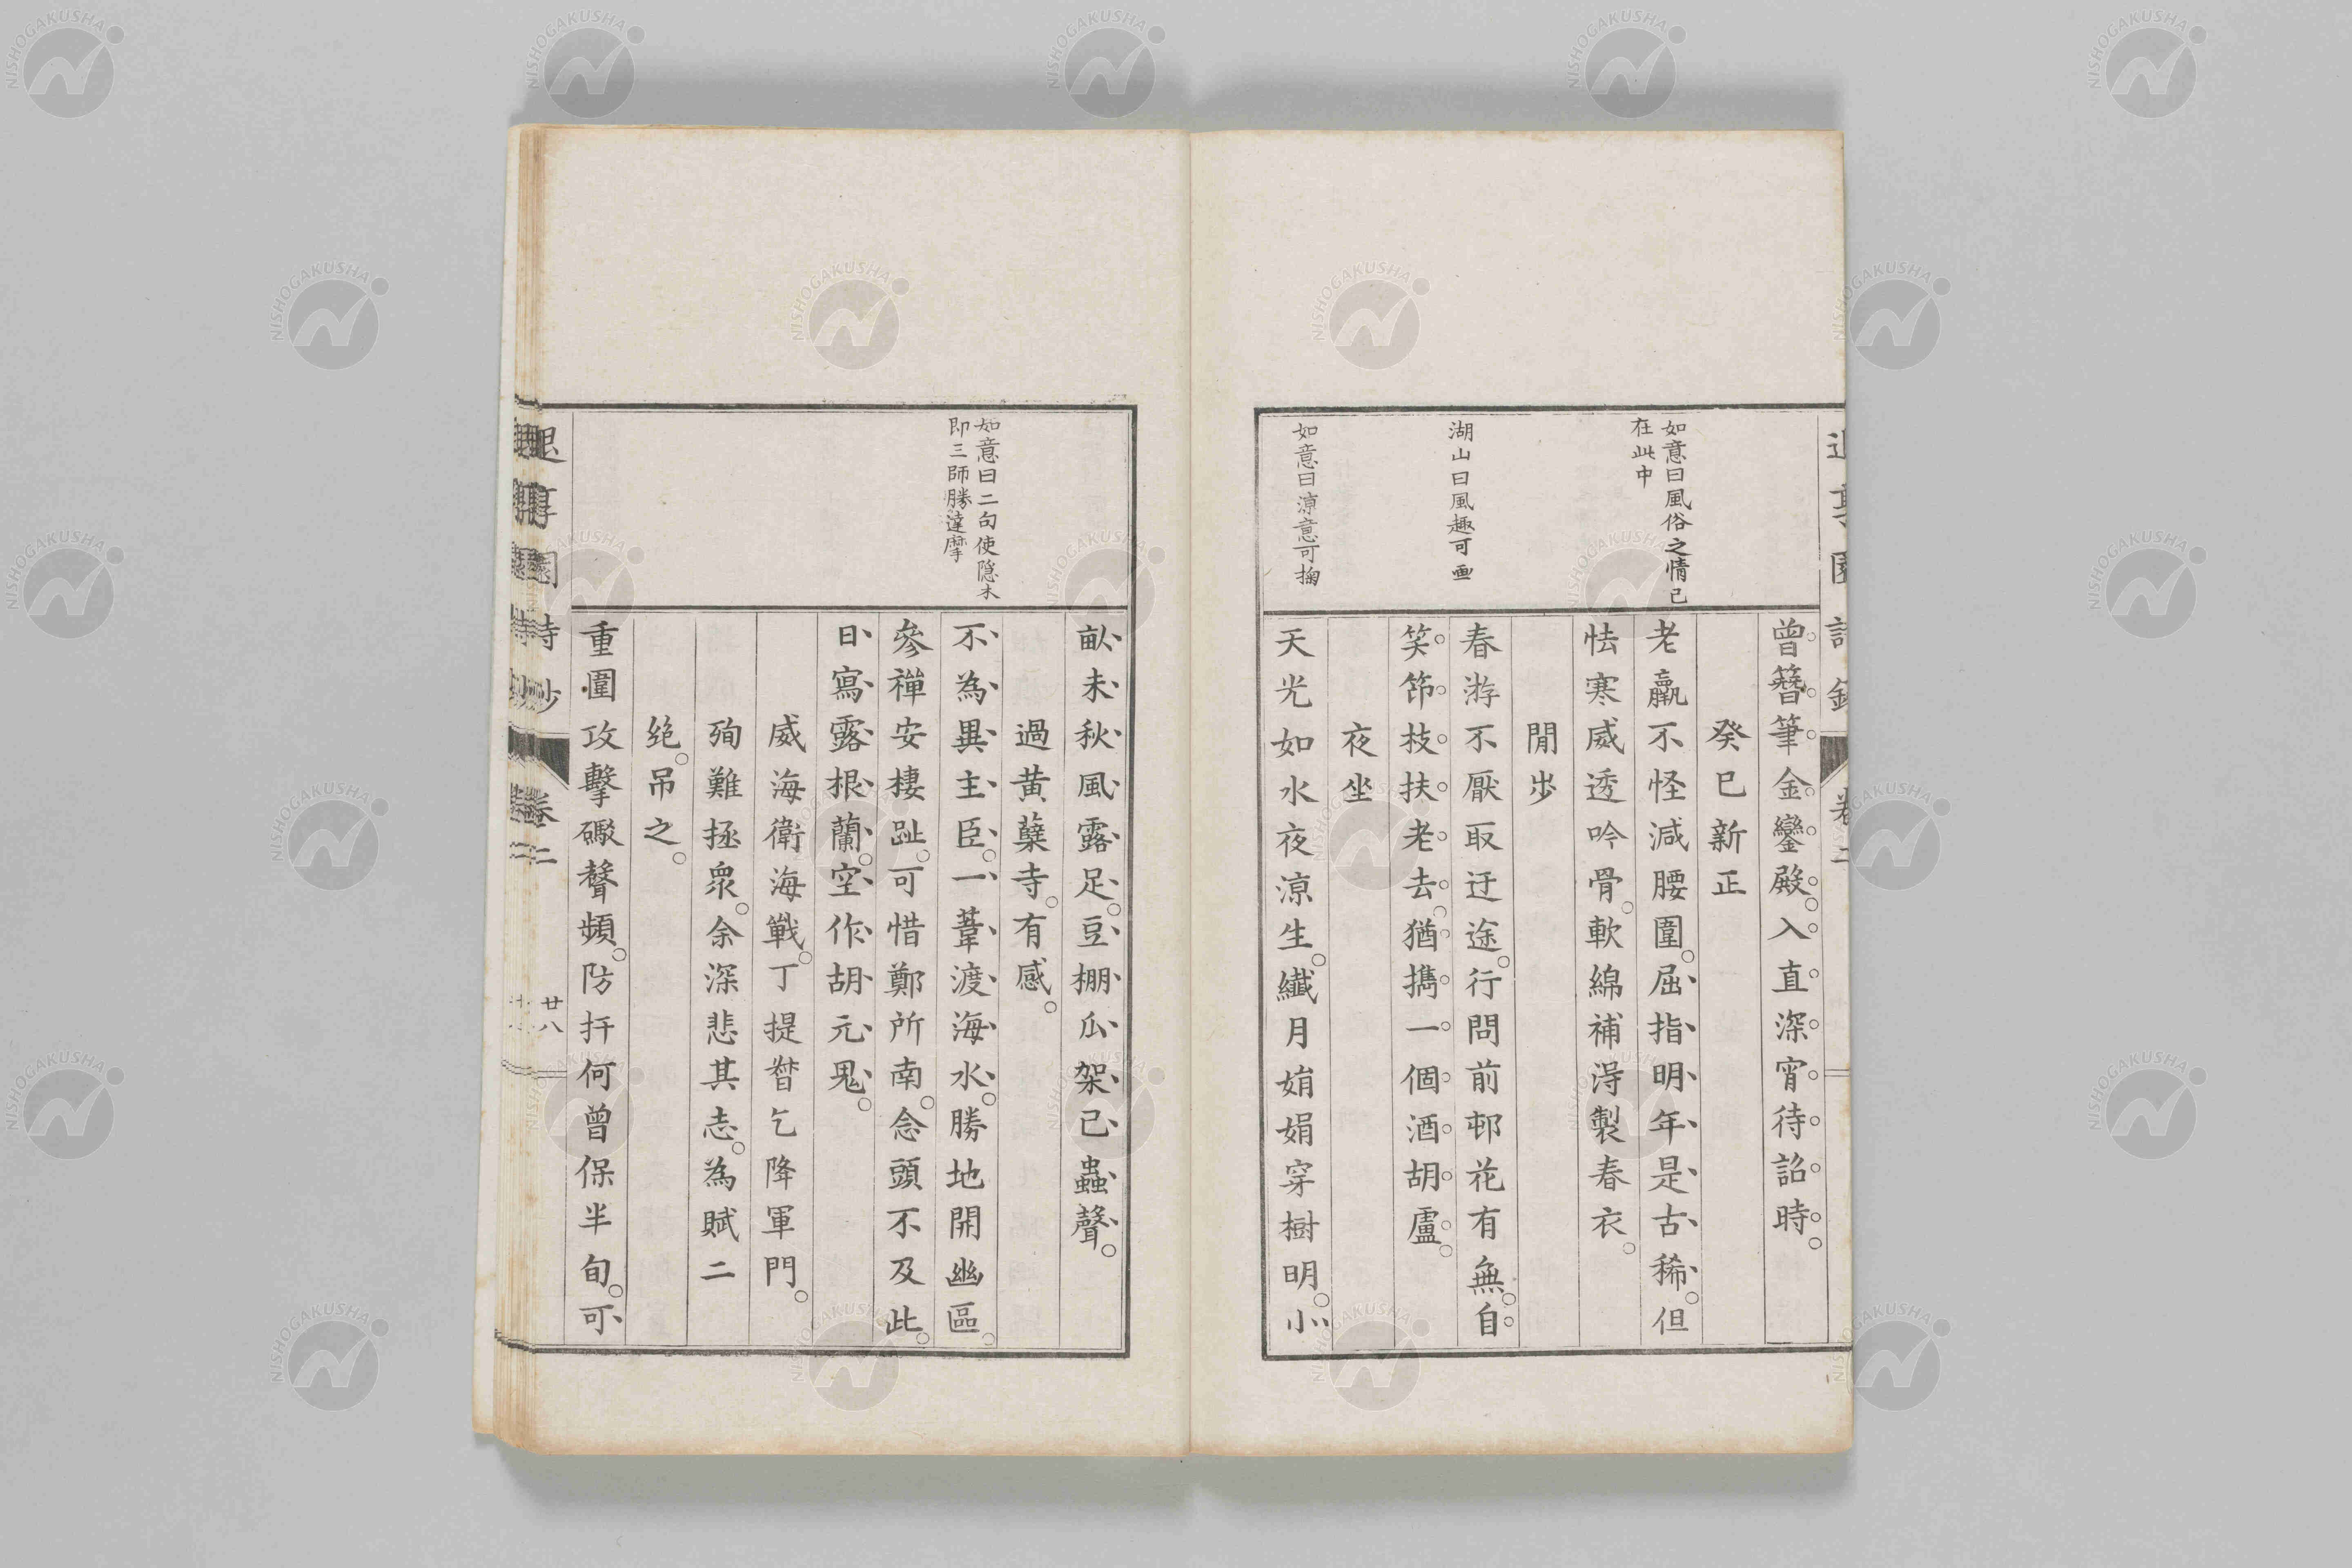 曾簪筆金鑾殿。入直深宵待詔時。
癸巳新正
老羸不怪減腰圍。屈指明年是古稀。但
怯寒威透吟骨。軟綿補淂製春衣。
閒步
春游不厭取迂途。行問前邨花有無。自
笑笻枝扶老去。猶攜一個酒胡盧。
夜坐
天光如水夜涼生。纖月娟娟穿樹明。小
如意曰風俗之情已
在此中
湖山曰風趣可画
如意曰涼意可掬
畝未秋風露足。豆棚瓜架已蟲聲。
過黄蘗寺。有感。
不為異主臣。一葦渡海水。勝地開幽區。
參禪安棲趾。可惜鄭所南。念頭不及此。
日寫露根蘭。空作胡元鬼。
威海衛海戰。丁提督乞降軍門。
殉難拯衆。余深悲其志。為賦二
絶。吊之。
重圍攻擊礮聲頻。防扞何曾保半旬。可
如意曰二句使隠木
即三師勝達摩
退享園詩鈔
卷二
廿八
NISHOGAKUSHA